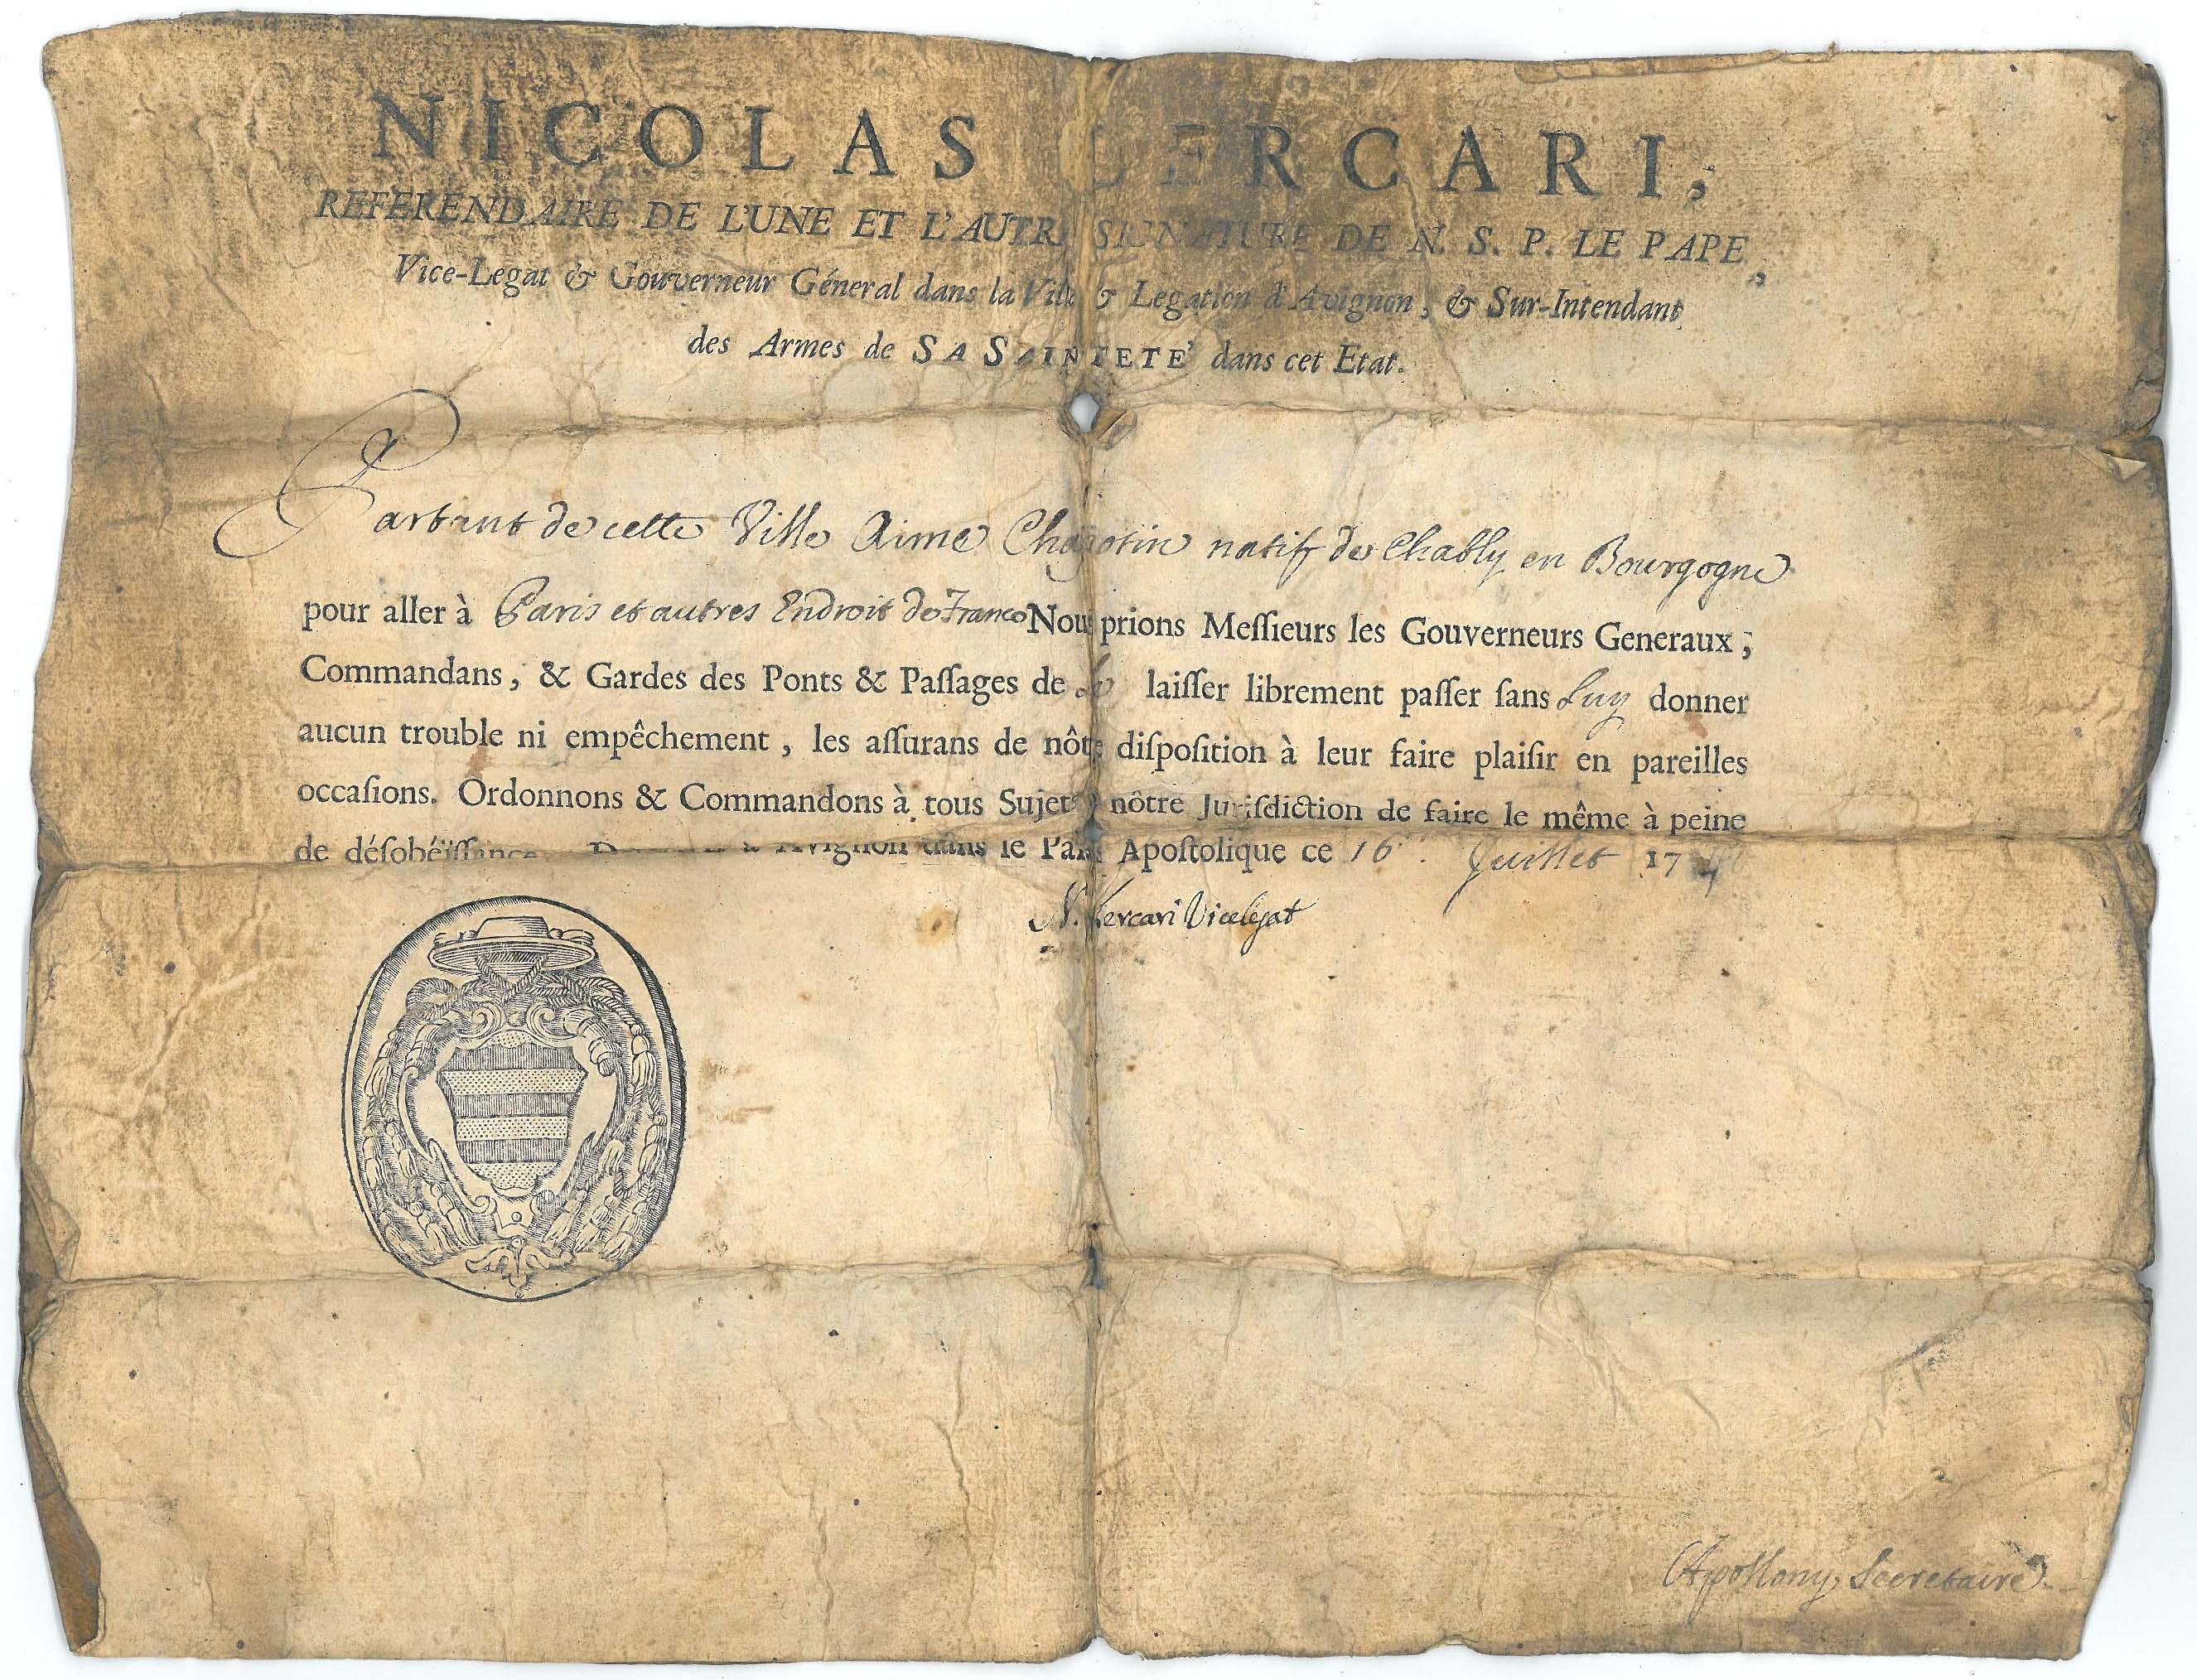 NICOLAS LERCARI,
REFERENDAIRE DE L'UNE ET L'AUTRE SIGNATURE DE N. S. P. LE PAPE,
Vice-Legat & Gouverneur Géneral dans la Ville & Legation d'Avignon, & Sur-Intendant
des Armes de SA SAINTETE' dans cet Etat.
Partant de cette Ville Aime Chapotin natif de Chably en Bourgogne
pour aller à Paris et autres Endroit de France Nous prions Meſſieurs les Gouverneurs Generaux,
Commandans, & Gardes des Ponts & Paſſages de Le laiſſer librement paſſer ſans Luy donner
aucun trouble ni empêchement, les aſſurans de nôtre diſpoſition à leur faire plaiſir en pareilles
occaſions. Ordonnons & Commandons à tous Sujets nôtre Juriſdiction de faire le même à peine
de déſobéiſſance. à Avignon dans le Palais Apoſtolique ce 16. Juillet 17
N. Lercari Vicelegat
Apollony, Secretaire.